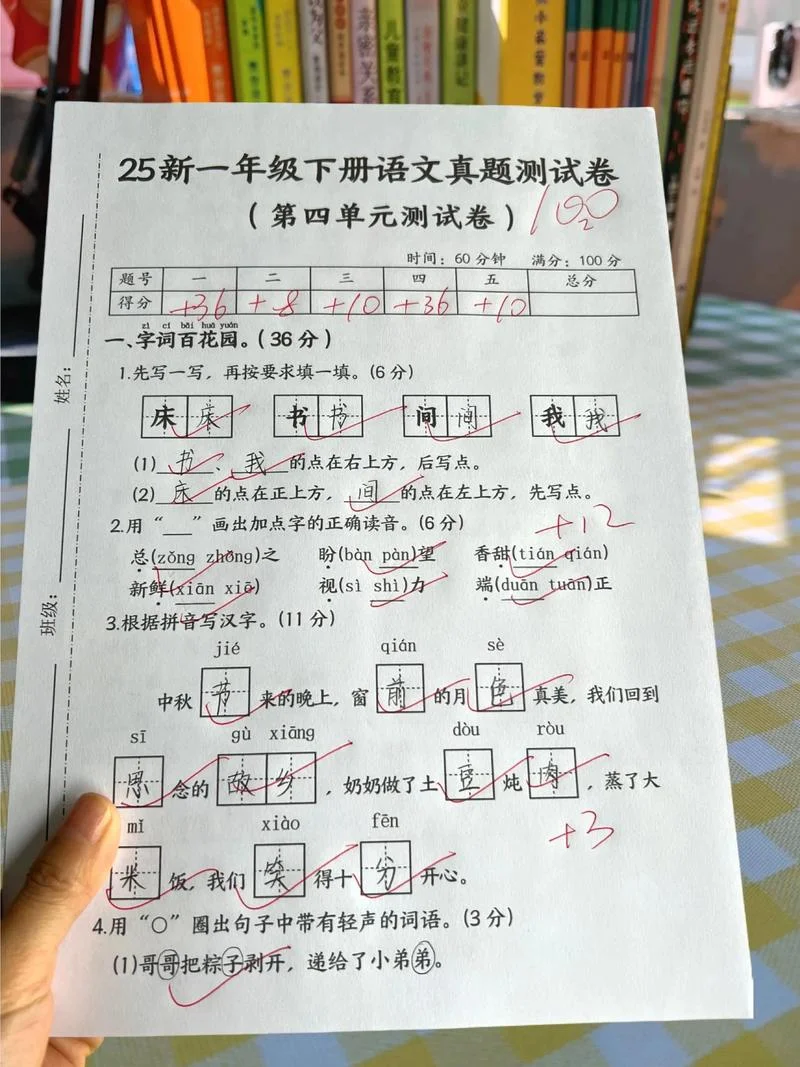 小
25新一年级下册语文真题测试卷
(第四单元测试卷) 100
时间：60分钟 满分：100分
题号 一 二 三 四 五 总分
得分 +36 +8 +10 +36 +10
姓名：
班级：
zì cí bǎi huā yuán
一、字词百花园。(36分)
1.先写一写，再按要求填一填。(6分)
床 床 书 书 间 间 我 我
(1) 书 、 我 的点在右上方，后写点。
(2) 床 的点在正上方， 间 的点在左上方，先写点。
2.用“___”画出加点字的正确读音。(6分) +12
总(zǒng zhǒng)之 盼(bàn pàn)望 香甜(tián qián)
新鲜(xiān xiā) 视(sì shì)力 端(duān tuān)正
3.根据拼音写汉字。(11分)
jié qián sè
中秋 节 来的晚上，窗 前 的月 色 真美，我们回到
sī gù xiāng dòu ròu
思 念的 故 乡 ，奶奶做了土 豆 炖 肉 ，蒸了大
mǐ xiào fēn +3
米 饭，我们 笑 得十 分 开心。
4.用“○”圈出句子中带有轻声的词语。(3分)
(1)哥哥把粽子剥开，递给了小弟弟。